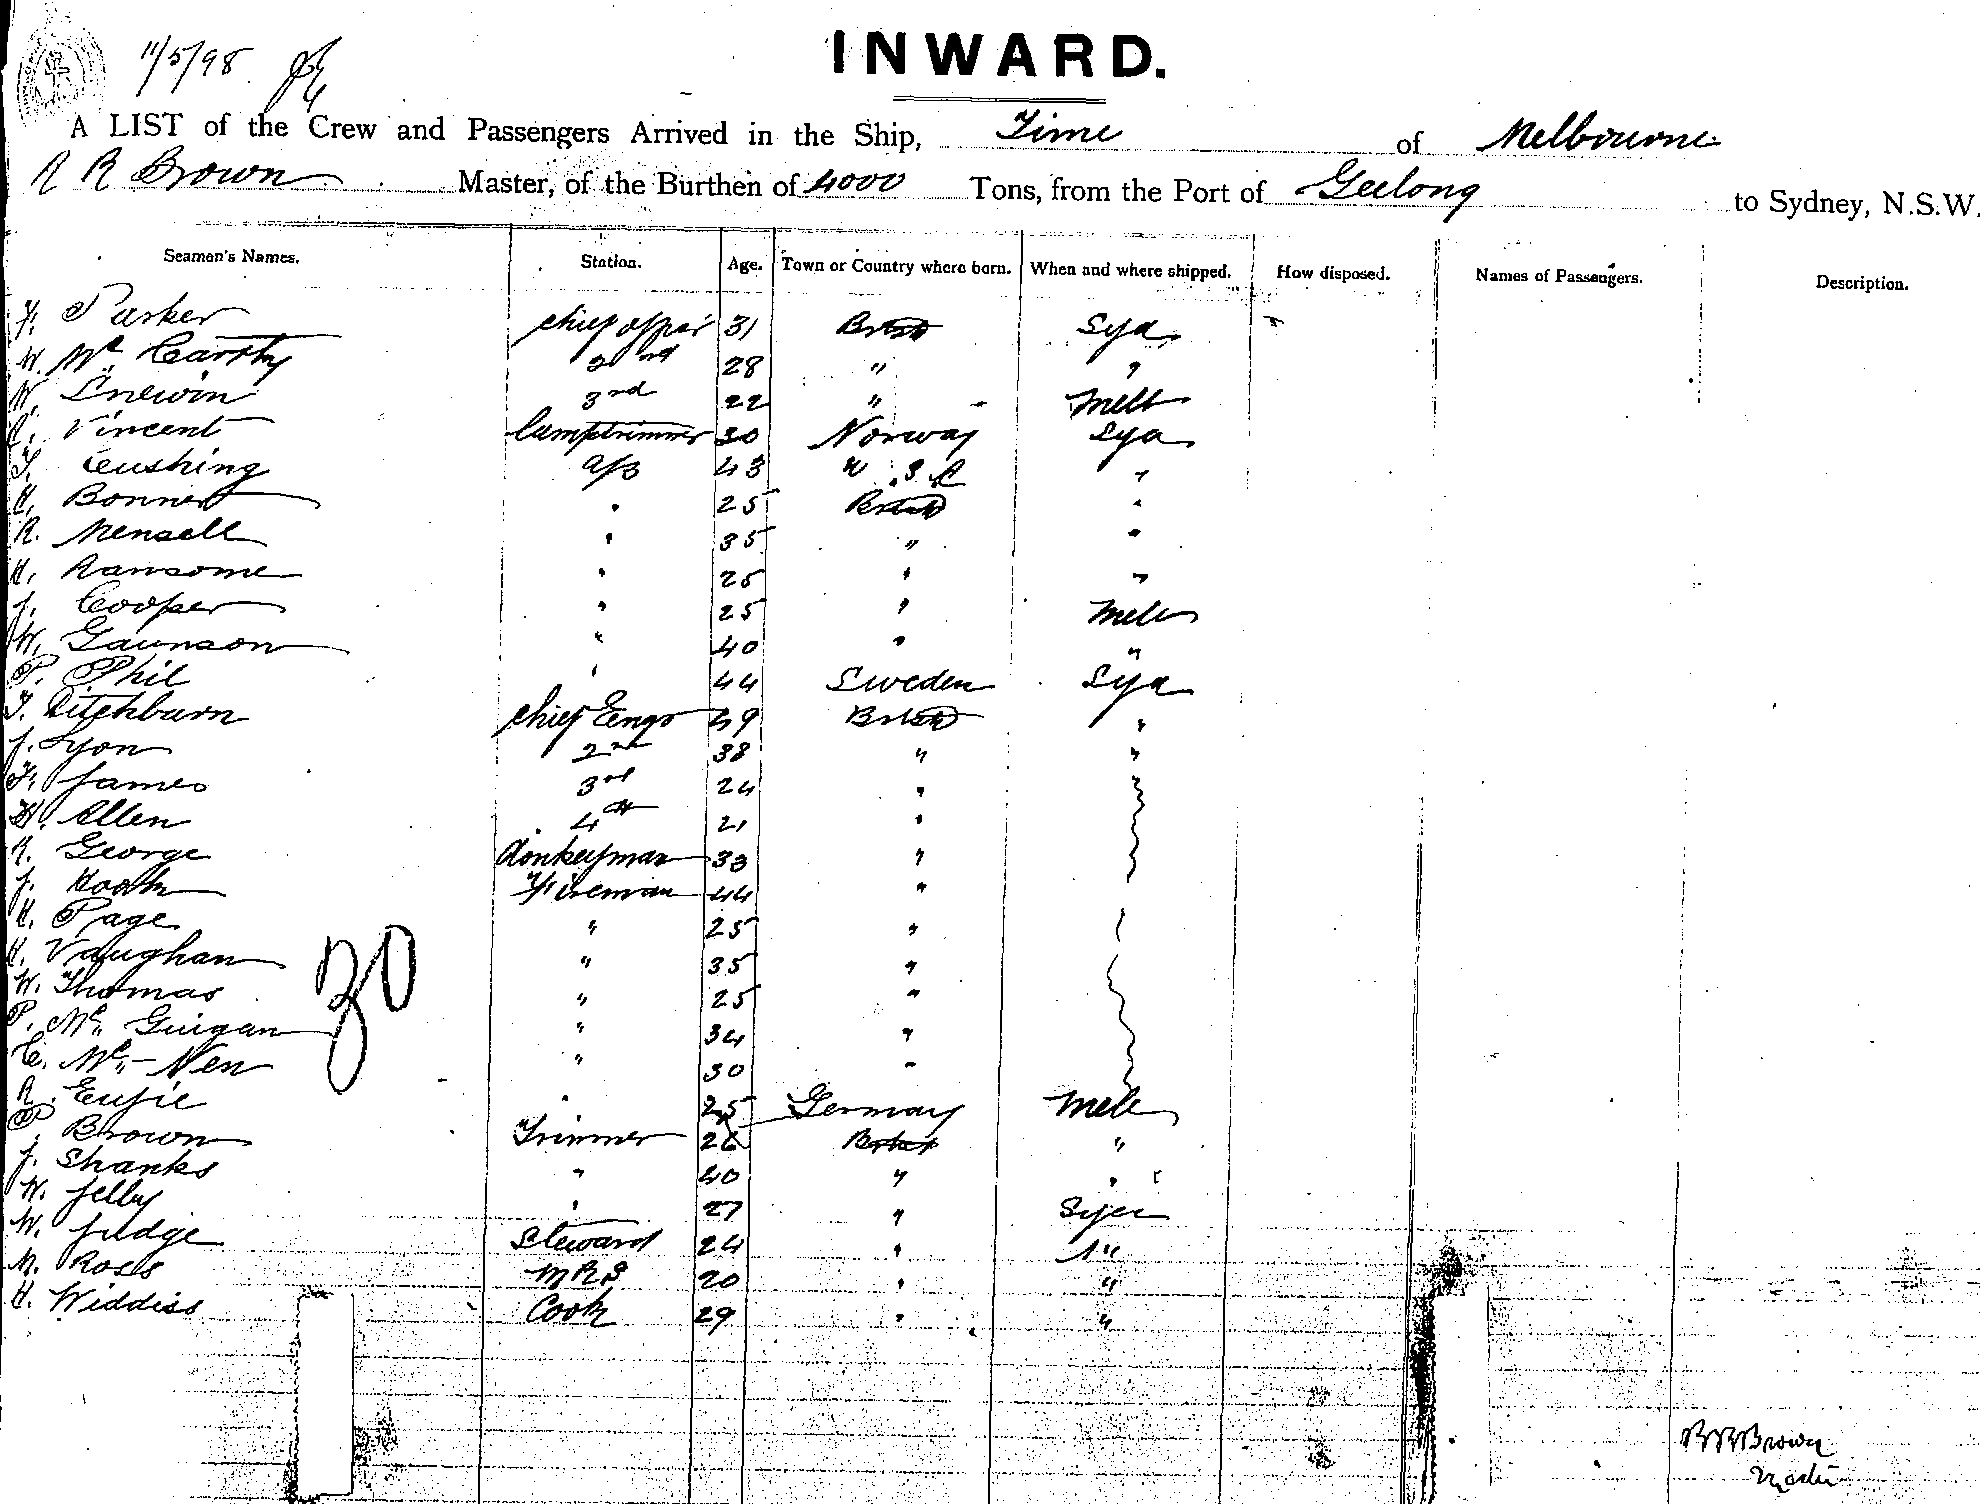 11/5/98
INWARD.
A LIST of the Crew and Passengers Arrived in the Ship, Time of Melbourne
R R Brown Master, of the Burthen of 4000 Tons, from the Port of Geelong to Sydney, N.S.W.
Seamen's Names. Station. Age. Town or Country where born. When and where shipped. How disposed. Names of Passengers. Description.
F. Parker chief offcer 31 British Syd
W. Mc Carthy 2nd 28 " "
W. Snewin 3rd 22 " Melb
Vincent Lamptrimmer 30 Norway Syd
T. Cushing a/s 43 U S A "
H. Bonner " 25 British "
R. Mensell " 35 " "
H. Ransome " 25 " "
J. Cooper " 25 " Melb
W. Gaunson " 40 " "
P. Phil " 44 Sweden Syd
T. Ditchburn chief Eng 49 British "
J. Lyon 2nd 38 " "
F. James 3rd 24 "
H. Allen 4th 21 "
R. George donkeyman 33 "
J. Fireman 44 "
H. Page " 25 "
H. Vaughan " 35 "
W. Thomas " 25 "
P. Mc Guigan " 34 "
C. Mc Nen " 30 "
30
R. " 25 Germany Melb
P Brown Trimmer 26 British "
J. Shanks " 40 " "
W. Jelly " 27 " Syd
W. Judge Steward 24 " "
M. Ross MRS 20 " "
H. Widdiss Cook 29 " "
R R Brown
Master